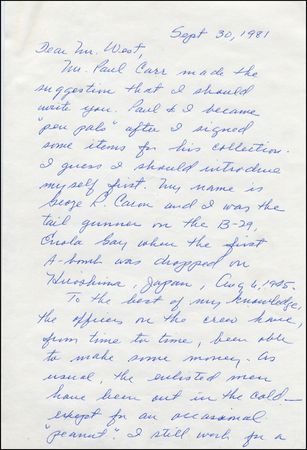 Sept 30, 1981
Dear Mr. West,
Mr. Paul Carr made the
suggestion that I should
write you. Paul & I became
"pen pals" after I signed
some items for his collection.
I guess I should introduce
myself first. My name is
George R. Caron and I was the
tail gunner on the B-29,
Enola Gay when the first
A-bomb was dropped on
Hiroshima, Japan, Aug 6, 1945.
To the best of my knowledge,
the officers on the crew have,
from time to time, been able
to make some money. As
usual, the enlisted men
have been out in the cold—
except for an occasional
"peanut". I still work for a